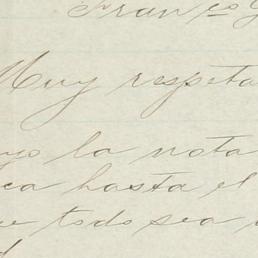 Fran^co
Muy respeta
yo la nota
ca hasta el
e todo sea